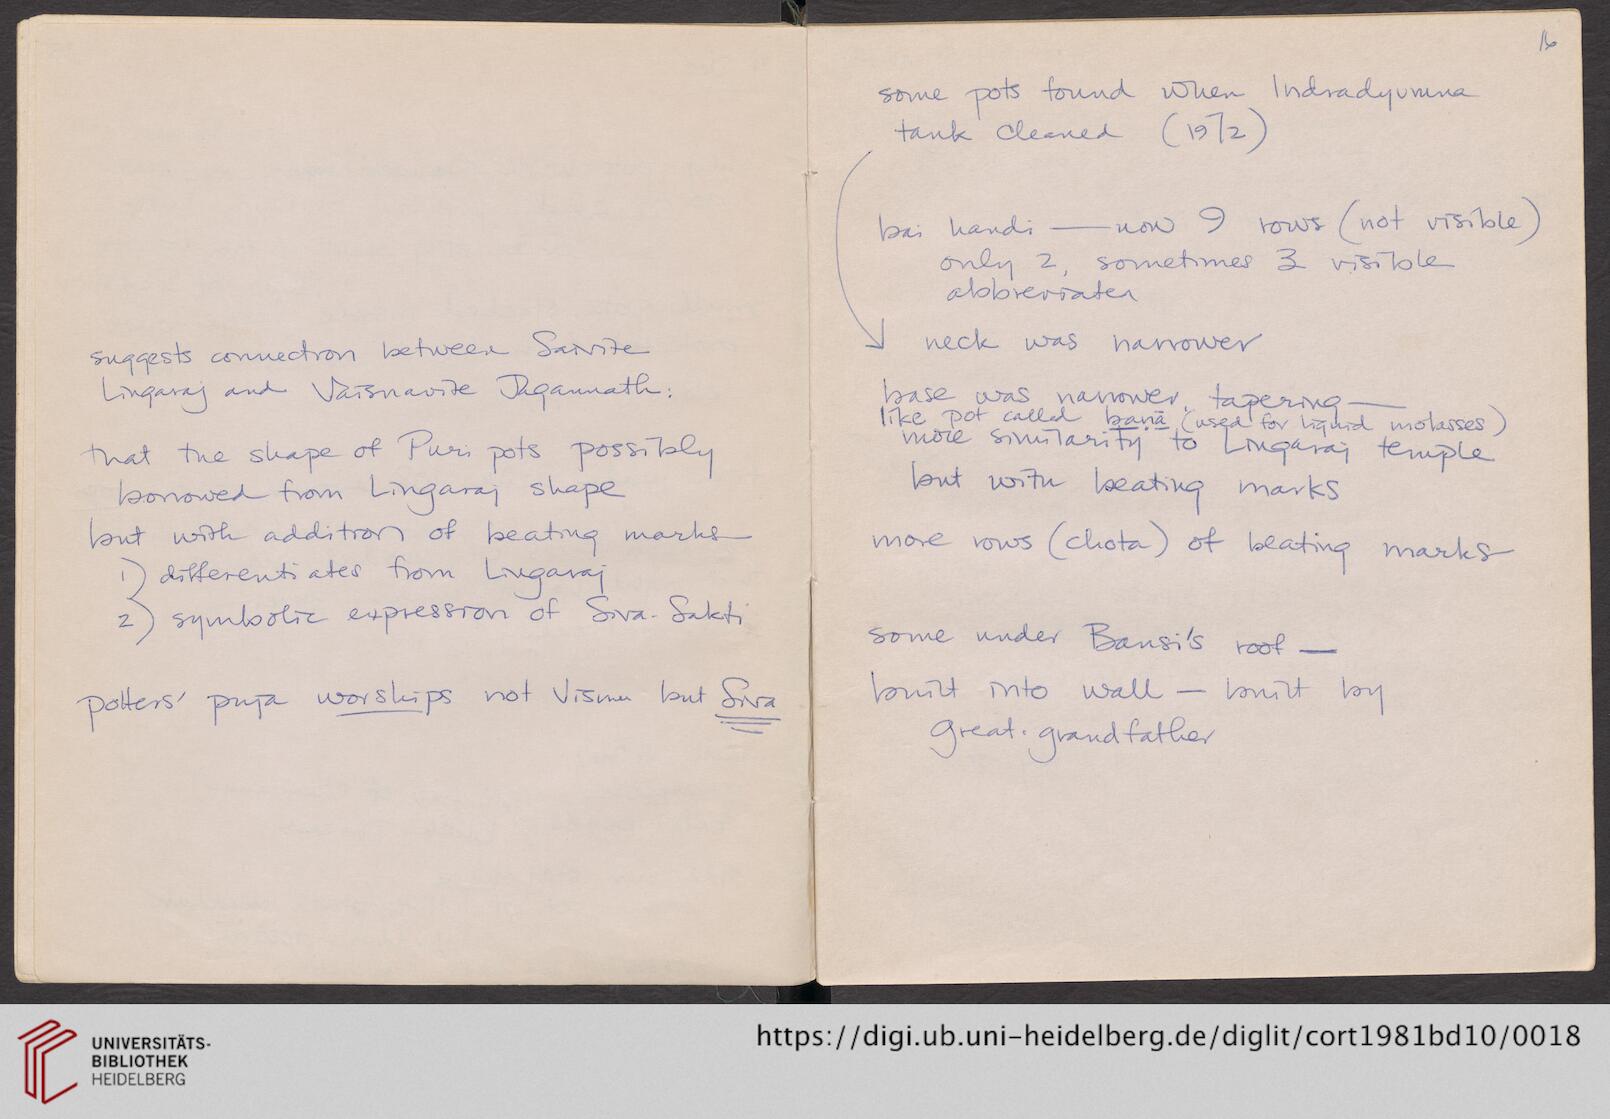 suggests connection between Saivite
Lingaraj and Vaisnavite Jagannath:
that the shape of Puri pots possibly
borrowed from Lingaraj shape
but with addition of beating marks
1) differentiates from Lingaraj
2) symbolic expression of Siva-Sakti
potters' puja worships not Visnu but Siva
16
some pots found when Indradyumna
tank cleaned (1972)
bai handi — now 9 rows (not visible)
only 2, sometimes 3 visible
abbreviated
neck was narrower
base was narrower, tapering —
like pot called (used for liquid molasses)
more similarity to Lingaraj temple
but with beating marks
more rows (chota) of beating marks
some under Bansi's roof —
built into wall — built by
great-grandfather
UNIVERSITÄTS-
BIBLIOTHEK
HEIDELBERG
https://digi.ub.uni-heidelberg.de/diglit/cort1981bd10/0018